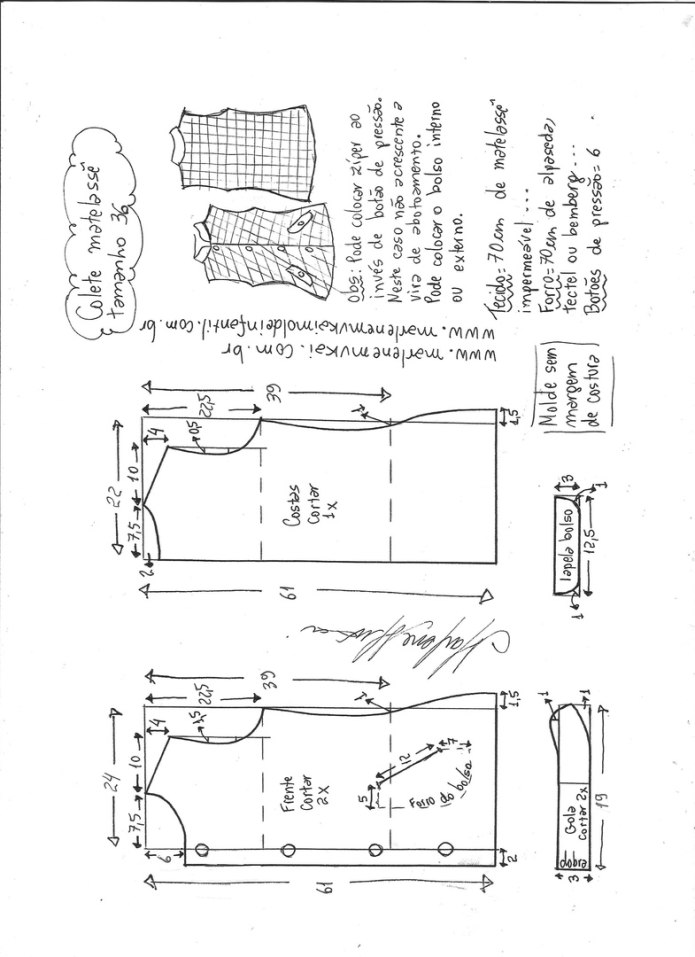 Colete matelassê
tamanho 36
Obs: Pode colocar zíper ao
invés de botão de pressão.
Neste caso não acrescente a
vira de abotoamento.
Pode colocar o bolso interno
ou externo.
Tecido= 70 cm de matelassê
impermeável ...
Forro= 70 cm de alpaseda,
tectel ou bemberg ...
Botões de pressão= 6
www.marlenemukai.com.br
www.marlenemukaimoldeinfantil.com.br
Molde sem
margem
de costura
22
7,5
10
4
2
22,5
39
0,5
1
61
1,5
Costas
cortar
1x
lapela bolso
3
1
12,5
1
24
7,5
10
4
6
22,5
39
1,5
1
61
1,5
2
Frente
Cortar
2x
5
12
7
Forro do bolso
Gola
cortar 2x
dobra
3
19
1
1